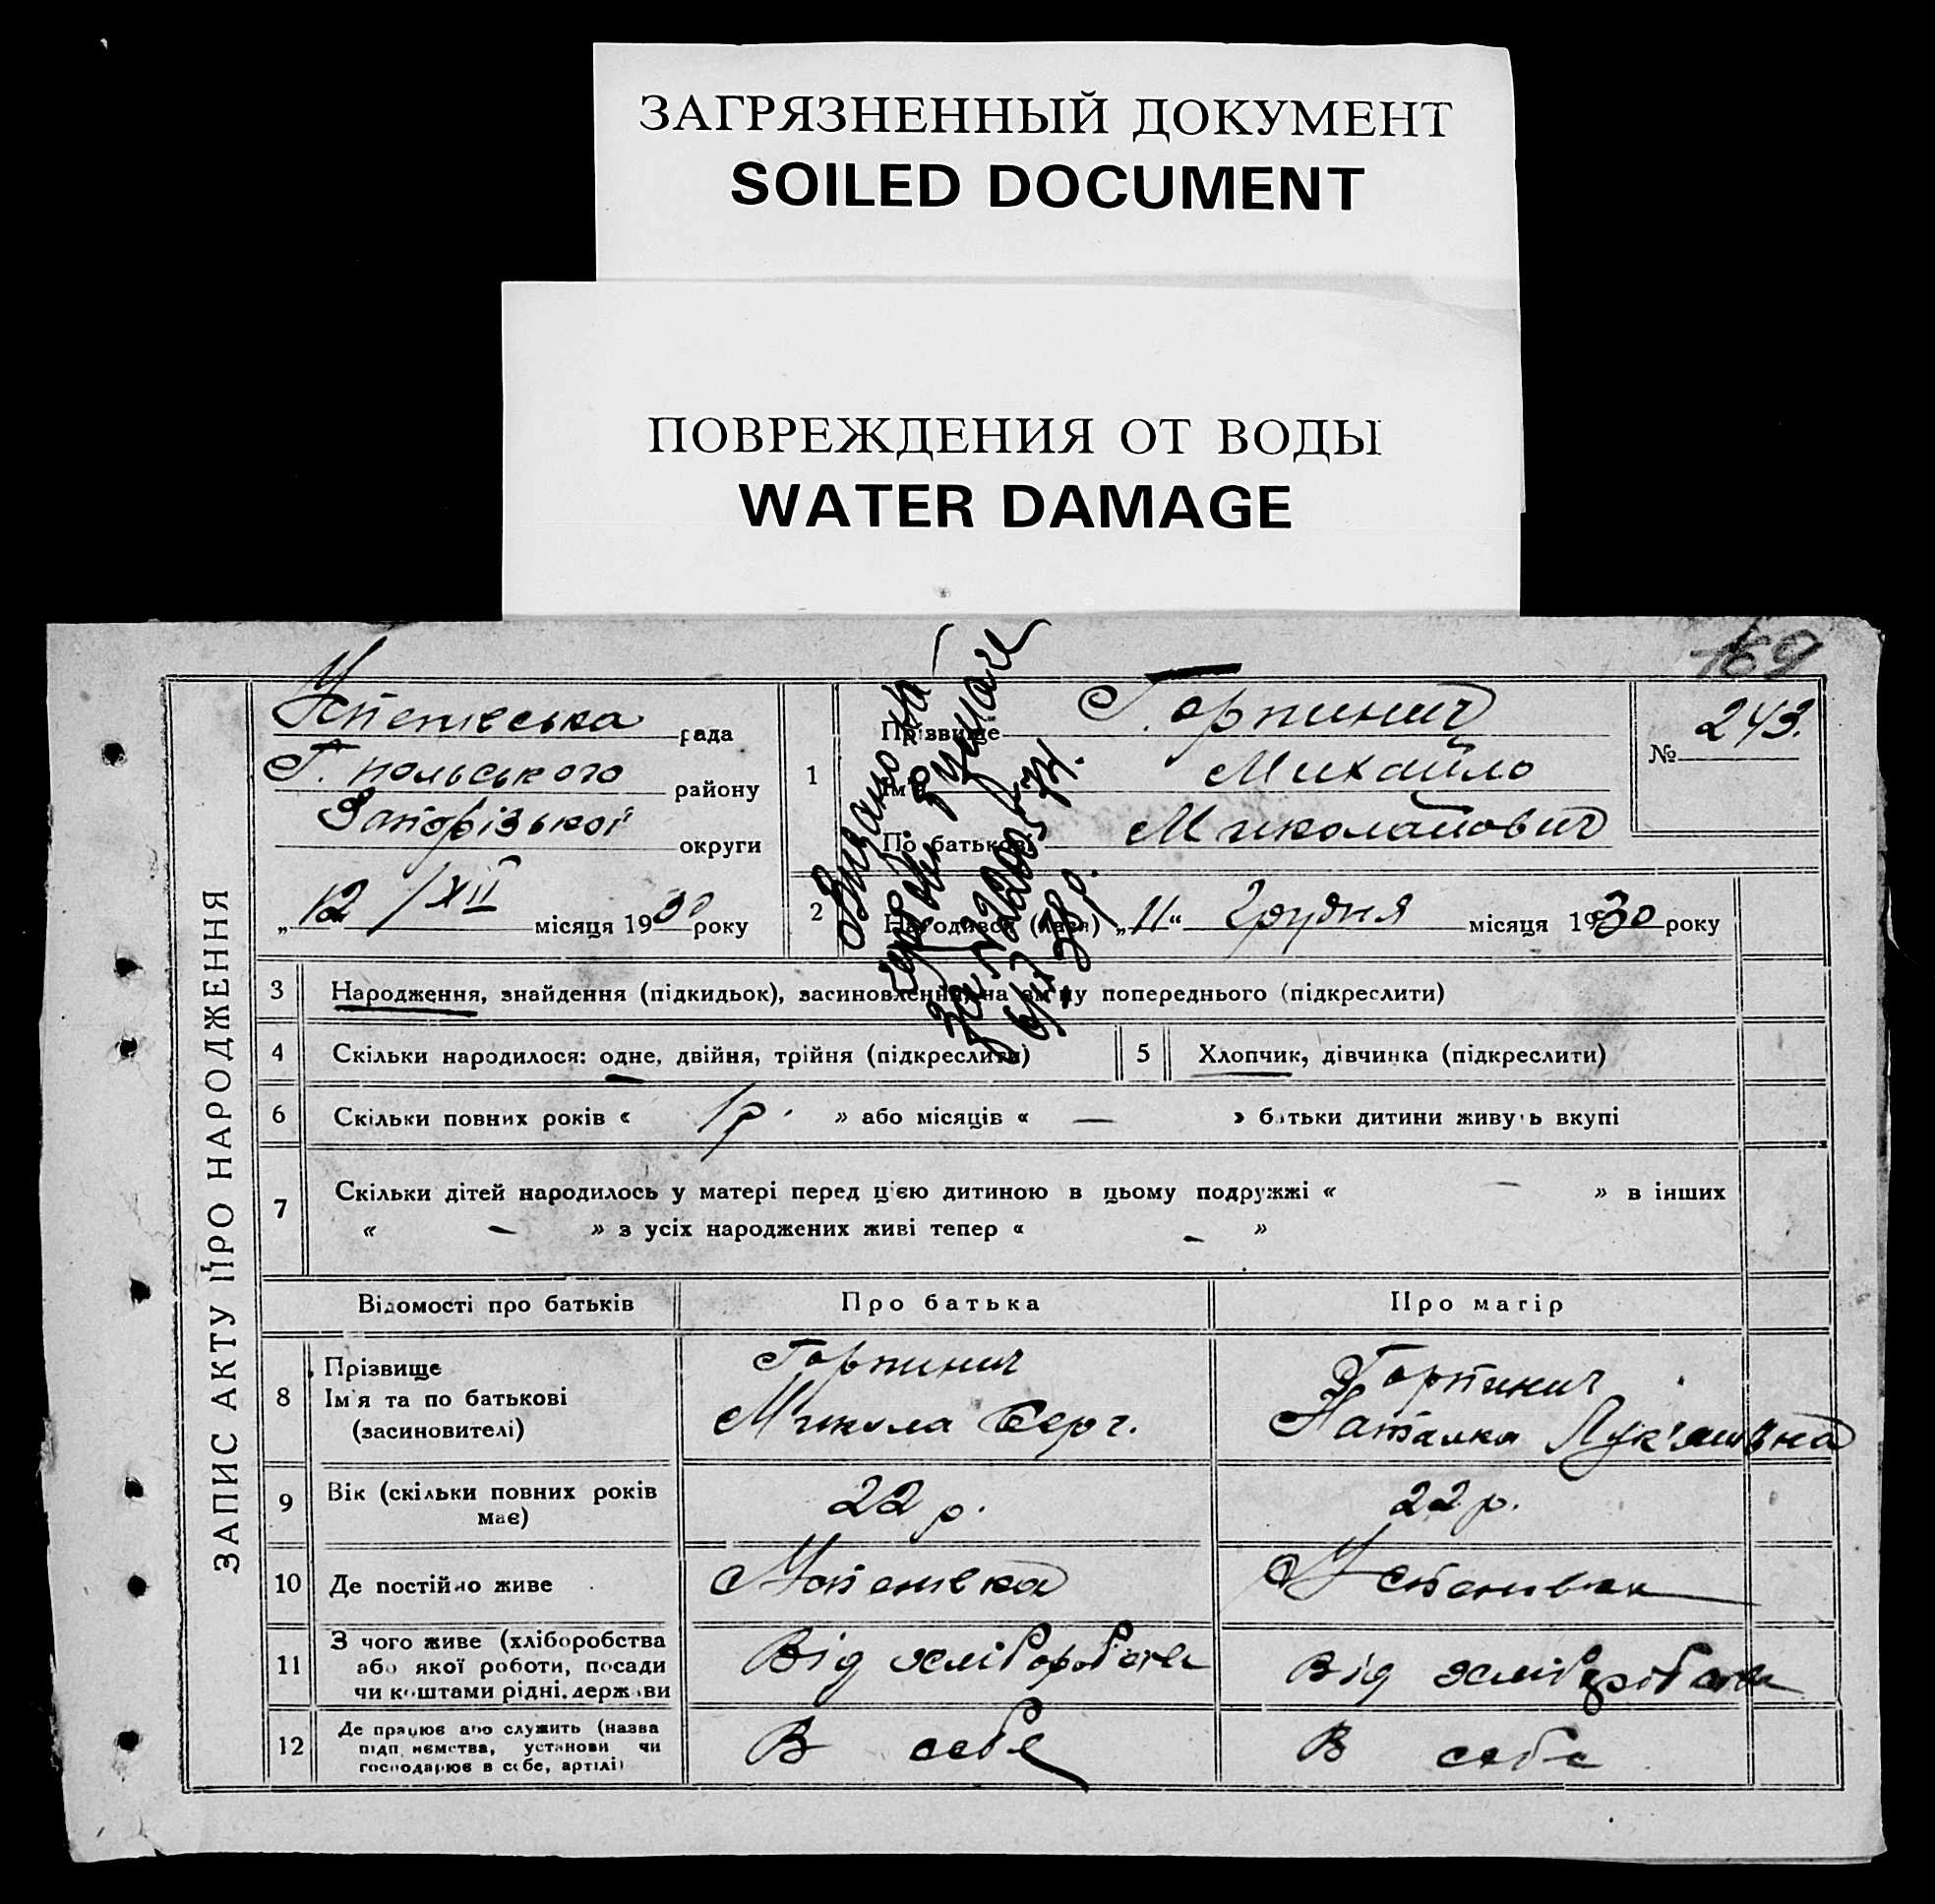 ЗАГРЯЗНЕННЫЙ ДОКУМЕНТ
SOILED DOCUMENT
ПОВРЕЖДЕНИЯ ОТ ВОДЫ
WATER DAMAGE
169
ЗАПИС АКТУ ПРО НАРОДЖЕННЯ
рада
Г. польського району
Запорізької округи
„12 /XII місяця 1930 року
1
Прізвище Горпинич
Ім'я Михайло
По батькові Миколайович
№ 243.
2
Народився (лася) „11“ Грудня місяця 1930 року
Видано
6/XI 38р.
3 Народження, знайдення (підкидьок), засиновлення, на зміну попереднього (підкреслити)
4 Скільки народилося: одне, двійня, трійня (підкреслити)
5 Хлопчик, дівчинка (підкреслити)
6 Скільки повних років « 1р. » або місяців « — » батьки дитини живуть вкупі
7 Скільки дітей народилось у матері перед цією дитиною в цьому подружжі « — » в інших
« — » з усіх народжених живі тепер « — »
Відомості про батьків
Про батька
Про матір
8 Прізвище
Ім'я та по батькові
(засиновителі)
Горпинич
Микола Серг.
Горпинич
Наталка Лук'янівна
9 Вік (скільки повних років
має)
22 р.
22 р.
10 Де постійно живе
11 З чого живе (хліборобства
або якої роботи, посади
чи коштами рідні, держави
Від хліборобства
Від хліборобства
12 Де працює або служить (назва
підприємства, установи чи
господарює в себе, артілі)
В себе
В себе